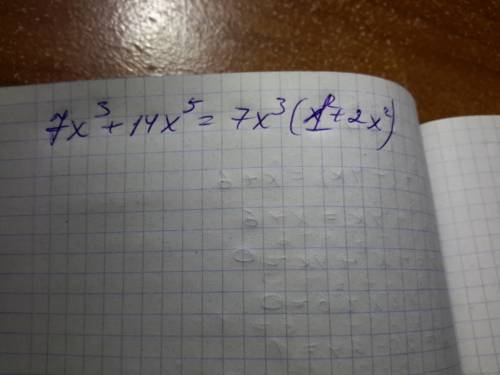 7x³ + 14x⁵ = 7x³(1 + 2x²)